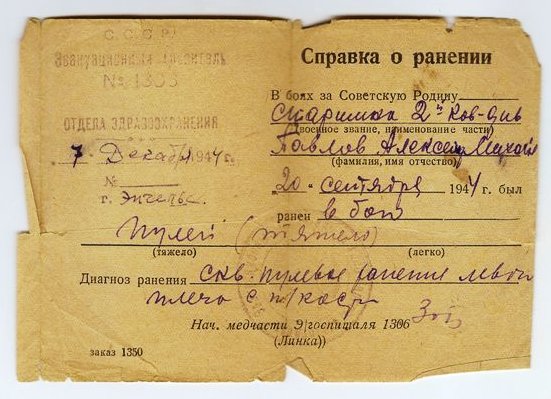 С С С Р
Эвакуационный госпиталь
№ 1306
ОТДЕЛА ЗДРАВООХРАНЕНИЯ
7 Декабря 1944 г.
№
г. Энгельс
Справка о ранении
В боях за Советскую Родину
Старшина 2й Кав-див
(военное звание, наименование части)
Павлов Алексей
(фамилия, имя отчество)
20 сентября 1944 г. был
ранен в бою
пулей (тяжело)
(тяжело) (легко)
Диагноз ранения скв. пулевое ранение левого
плеча с п/кости
Нач. медчасти Э|госпиталя 1306
(Линка))
заказ 1350